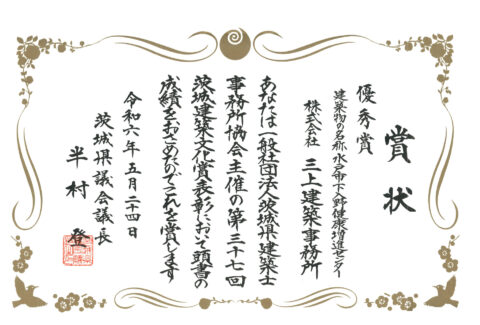 賞状
優秀賞
建築物の名称 水戸市下入野健康増進センター
株式会社 三上建築事務所
あなたは一般社団法人茨城県建築士
事務所協会主催の第三十七回
茨城建築文化賞表彰において頭書の
成績をおさめたのでこれを賞します
令和六年五月二十四日
茨城県議会議長
半村 登